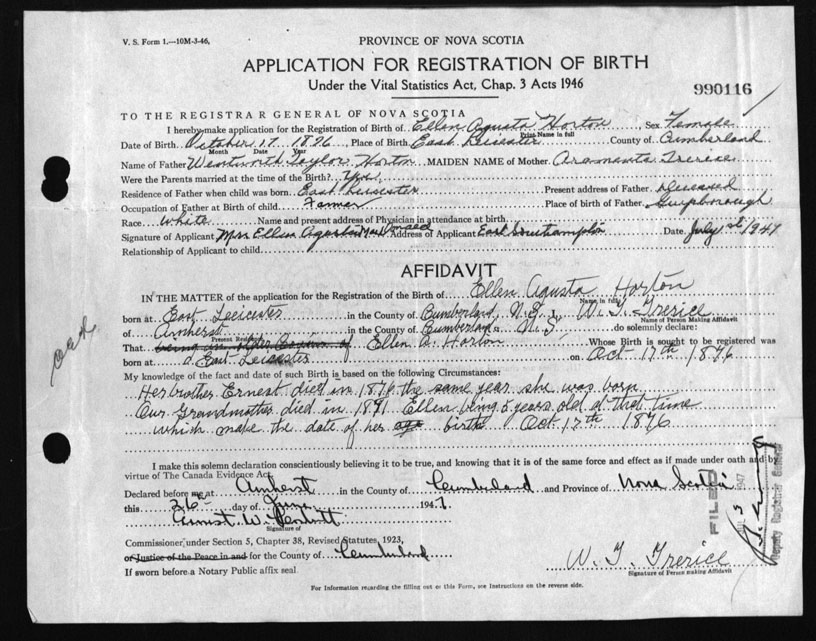 V. S. Form 1.—10M-3-46.
PROVINCE OF NOVA SCOTIA
APPLICATION FOR REGISTRATION OF BIRTH
Under the Vital Statistics Act, Chap. 3 Acts 1946
990116
TO THE REGISTRAR GENERAL OF NOVA SCOTIA
I hereby make application for the Registration of Birth of Ellen Agusta Horton, Sex Female
Print Name in full
Date of Birth October 17 1876 Place of Birth East Leicester County of Cumberland
Month Date Year
Name of Father Wentworth Taylor Horton MAIDEN NAME of Mother Araminta Trerice
Were the Parents married at the time of the Birth? Yes
Residence of Father when child was born East Leicester Present address of Father Deceased
Occupation of Father at Birth of child Farmer Place of birth of Father Guysborough
Race White Name and present address of Physician in attendance at birth
Signature of Applicant Mrs Ellen Agusta MacDonald Address of Applicant East Southampton Date July 1st 1947
Relationship of Applicant to child
AFFIDAVIT
IN THE MATTER of the application for the Registration of Birth of Ellen Agusta Horton
Name in full
born at East Leicester in the County of Cumberland, N.S. I, W. T. Trerice
Name of Person Making Affidavit
of Amherst in the County of Cumberland N.S. do solemnly declare:
Present Residence
That being an older Cousin of Ellen A. Horton Whose Birth is sought to be registered was
born at East Leicester on Oct 17th 1876
My knowledge of the fact and date of such Birth is based on the following Circumstances:
Her brother Ernest died in 1876 the same year she was born
Our Grandmother died in 1881 Ellen being 5 years old at that time
which make the date of her age birth Oct 17th 1876
I make this solemn declaration conscientiously believing it to be true, and knowing that it is of the same force and effect as if made under oath and by
virtue of The Canada Evidence Act.
Declared before me at Amherst in the County of Cumberland and Province of Nova Scotia
this 26 day of June 1947
Ernest W.
Signature of
Commissioner under Section 5, Chapter 38, Revised Statutes 1923,
or Justice of the Peace in and for the County of Cumberland
If sworn before a Notary Public affix seal
W. T. Trerice
Signature of Person making Affidavit
For Information regarding the filling out of this Form, see Instructions on the reverse side.
FILED
3 1947
Deputy Registrar General